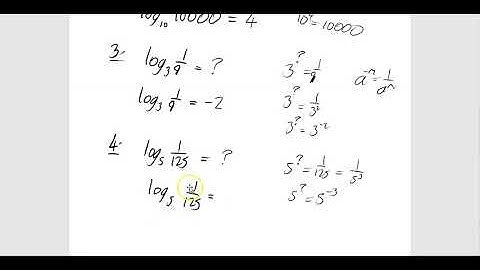 log₁₀ 10000 = 4    10⁴ = 10000
3. log₃ 1/9 = ?    3^? = 1/9    a⁻ⁿ = 1/aⁿ
log₃ 1/9 = -2    3^? = 1/3²
3^? = 3⁻²
4. log₅ 1/125 = ?    5^? = 1/125 = 1/5³
log₅ 1/125 =    5^? = 5⁻³